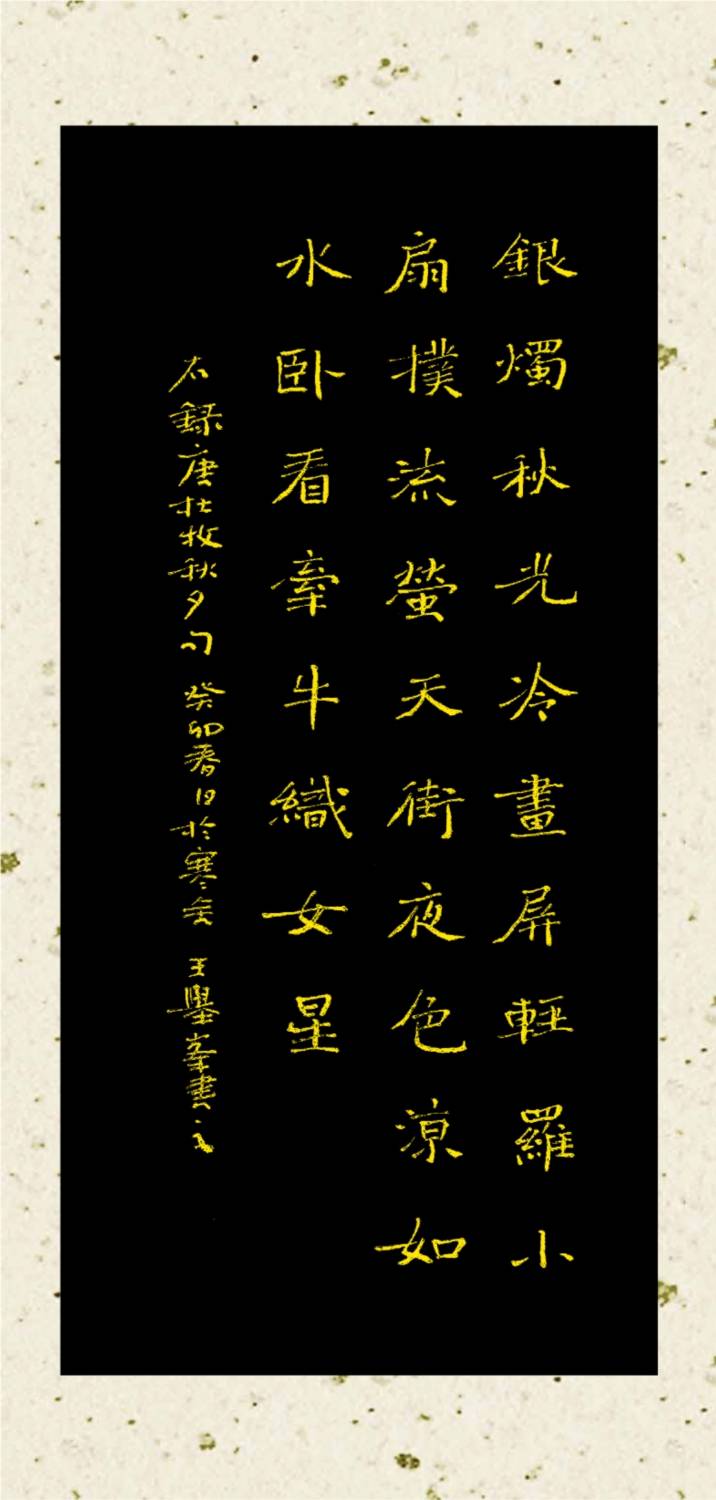 銀燭秋光冷畫屏輕羅小
扇撲流螢天街夜色涼如
水卧看牽牛織女星
右錄唐杜牧秋夕句 癸卯春日於寒舍 王舉峯書之